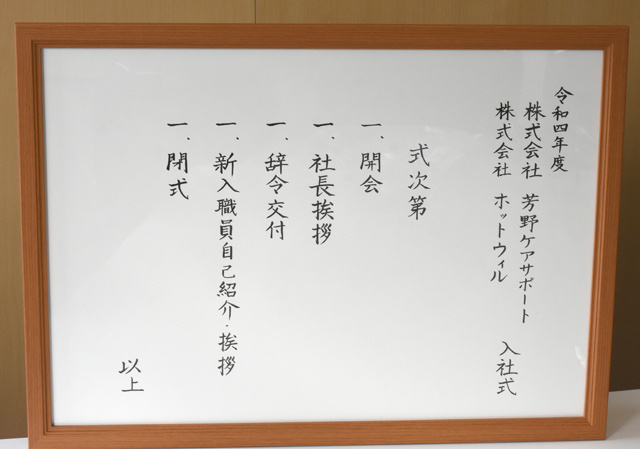 令和四年度
株式会社 芳野ケアサポート
株式会社 ホットウィル
入社式
式次第
一、開会
一、社長挨拶
一、辞令交付
一、新入職員自己紹介・挨拶
一、閉式
以上